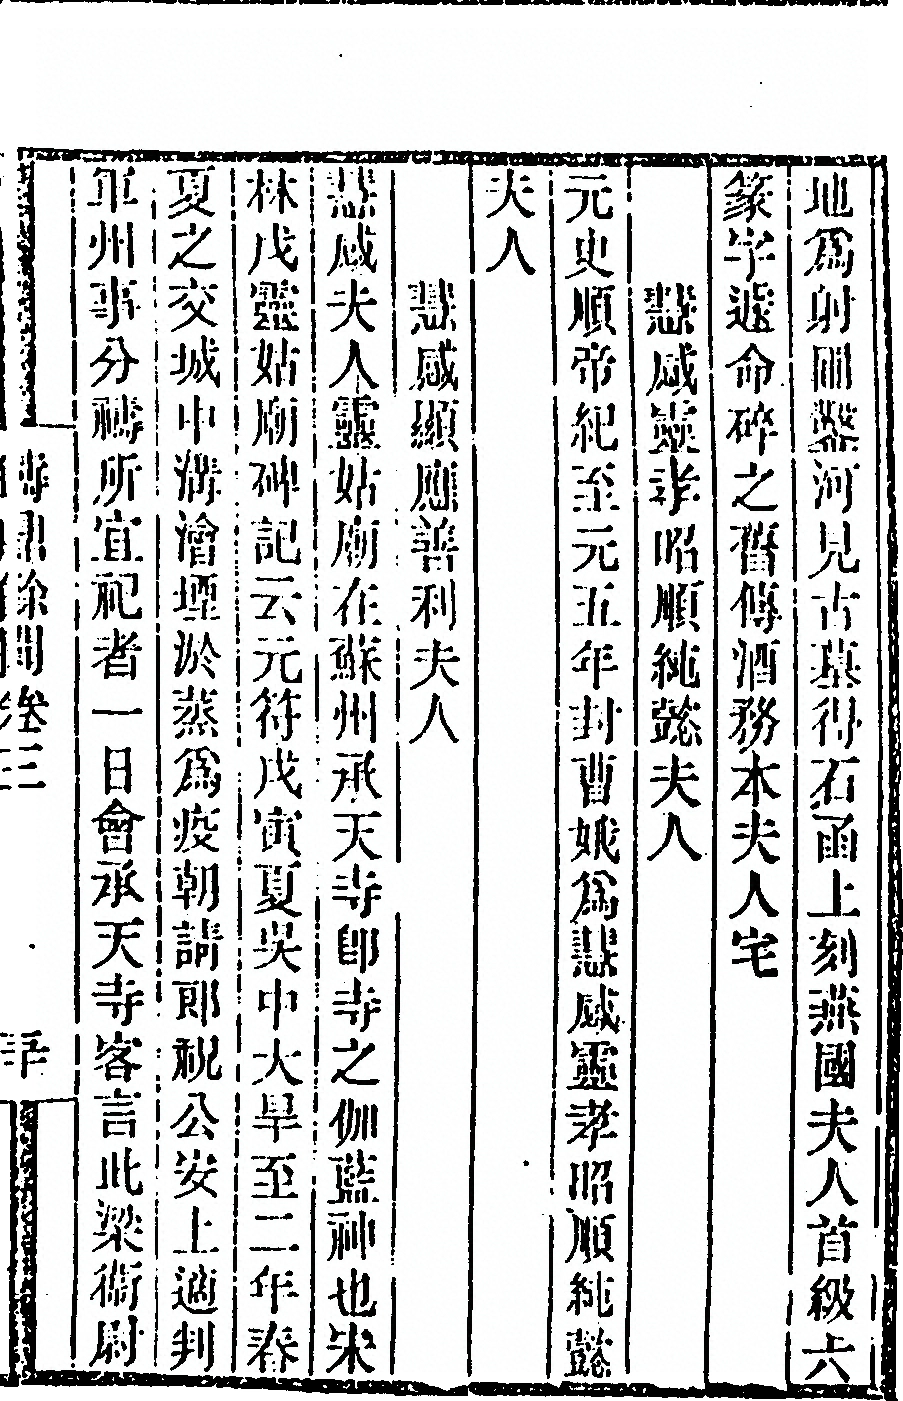 地為射圃鑿河見古墓得石函上刻燕國夫人首級六
篆字遽命碎之舊傳酒務本夫人宅
慧感靈孝昭順純懿夫人
元史順帝紀至元五年封曹娥為慧感靈孝昭順純懿
夫人
慧感顯應善利夫人
慧感夫人靈姑廟在蘇州承天寺即寺之伽藍神也宋
林戊靈姑廟碑記云元符戊寅夏吳中大旱至二年春
夏之交城中溝澮堙淤蒸為疫朝請郎祝公安上適判
軍州事分禱所宜祀者一日會承天寺客言此梁衛尉
卷三